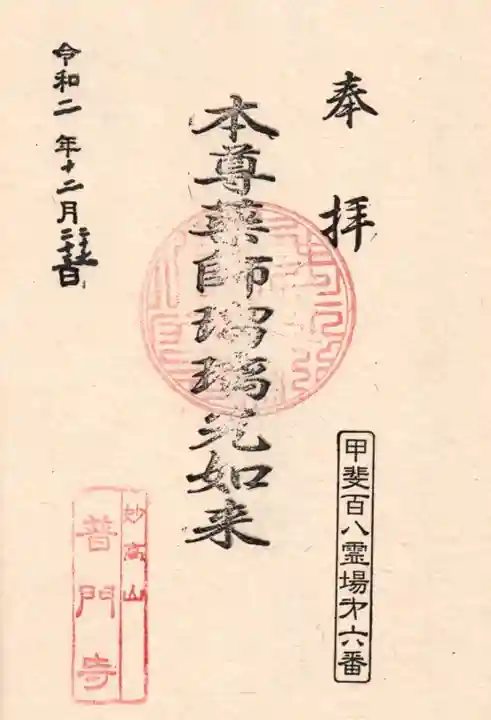 奉拝
甲斐百八霊場第六番
本尊薬師瑠璃光如来
令和二年十二月二十七日
妙高山
普門寺